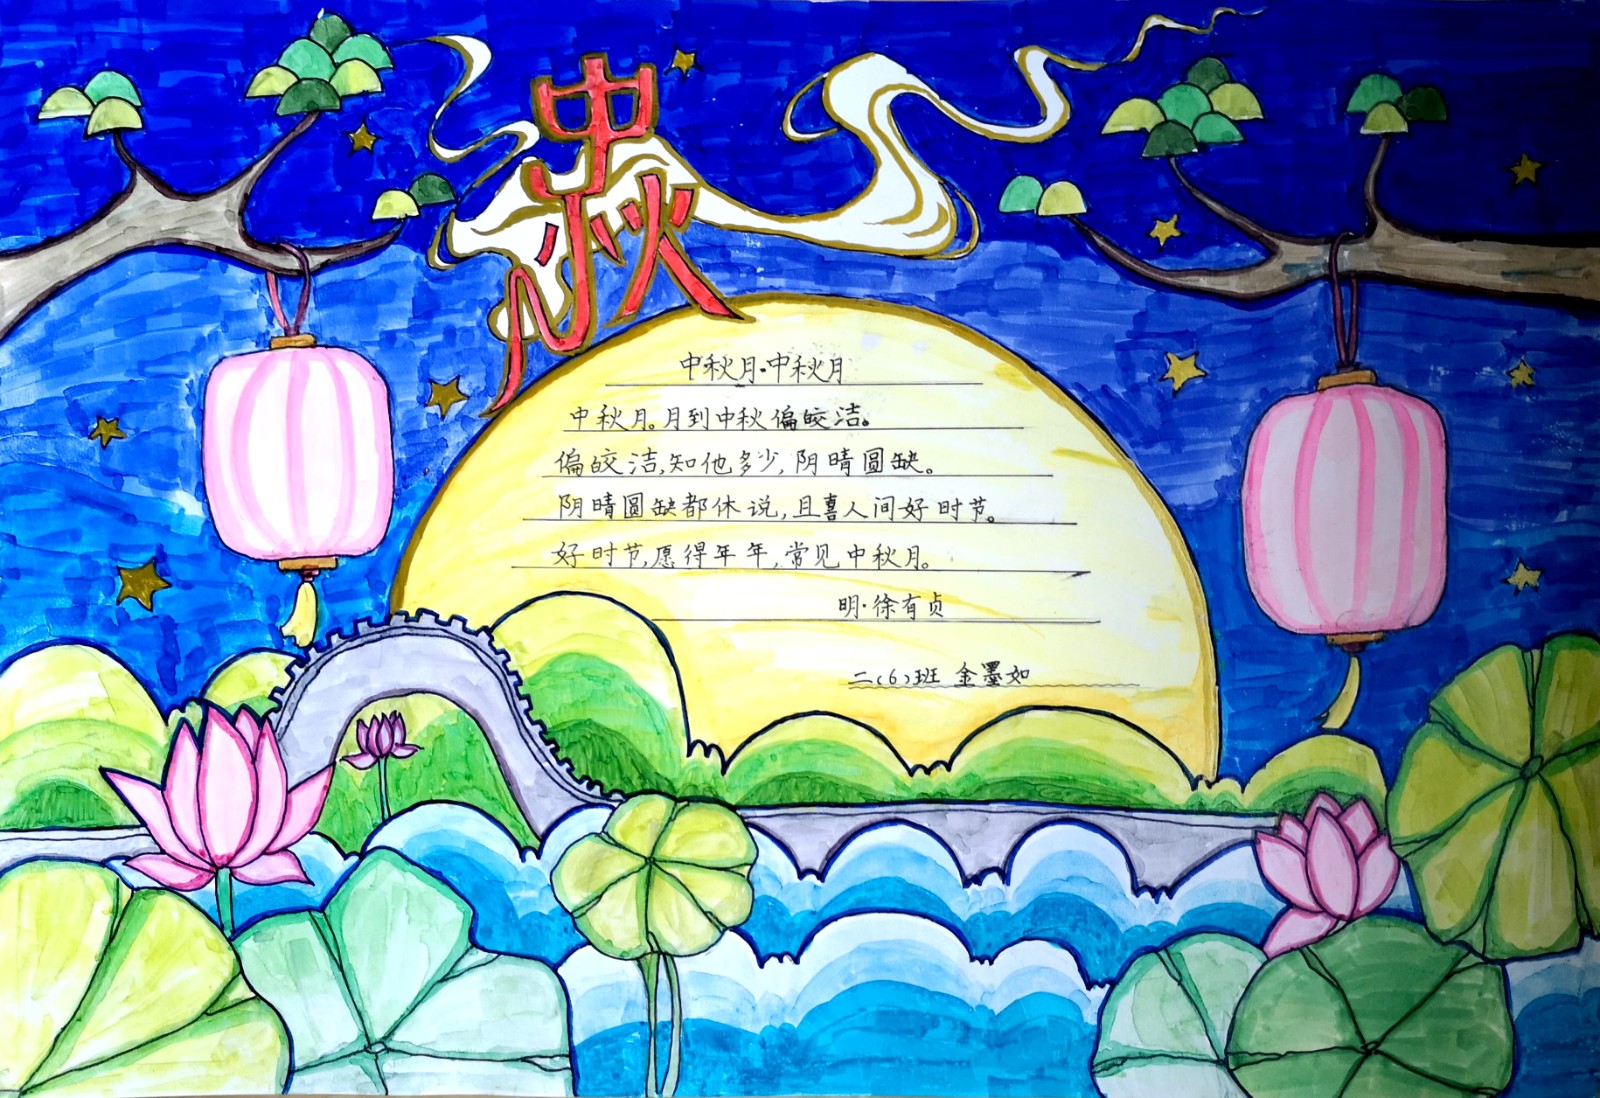 中秋
中秋月·中秋月
中秋月。月到中秋偏皎洁。
偏皎洁,知他多少,阴晴圆缺。
阴晴圆缺都休说,且喜人间好时节。
好时节,愿得年年,常见中秋月。
明·徐有贞
二(6)班 金墨如